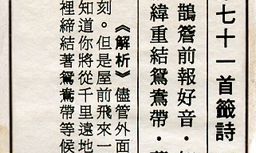 七十一首籤詩
鵲簷前報好音．
緯重結鴛鴦帶．
《解析》儘管外面
刻。但是屋前飛來一
知道你將從千里遠地
裡締結著鴛鴦帶等候